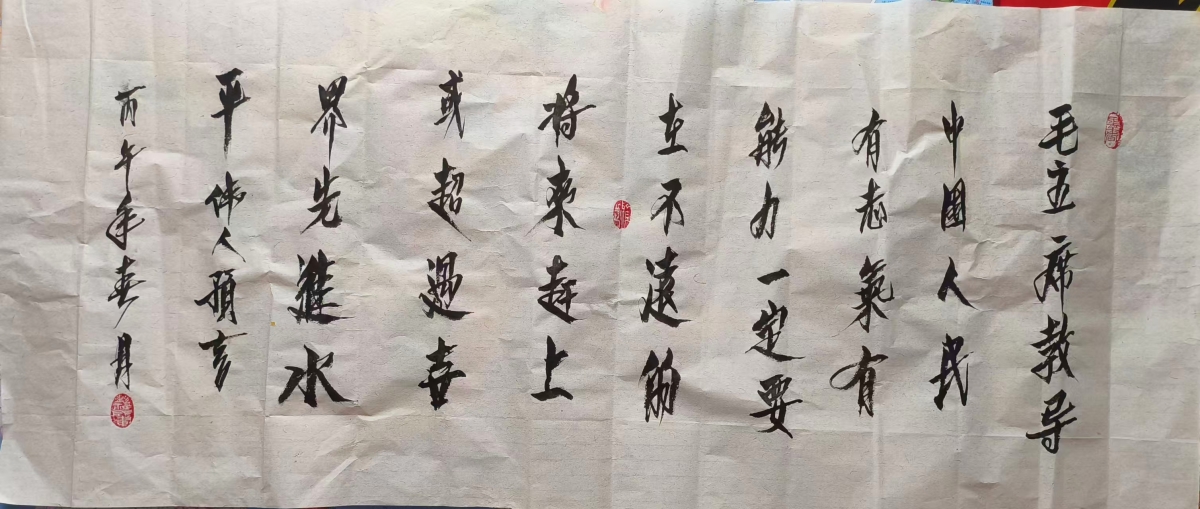 毛主席教导
中國人民
有志氣有
能力一定要
在不遠的
将来赶上
或超過世
界先進水
平 伟人預言
丙午年春月